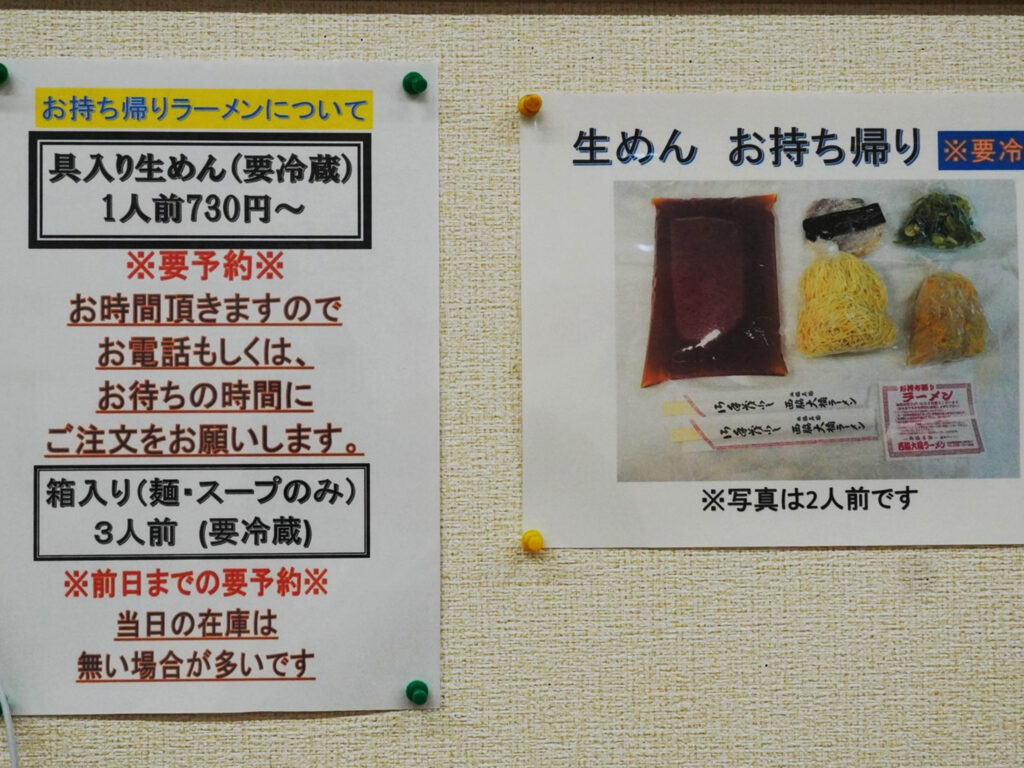 お持ち帰りラーメンについて
具入り生めん(要冷蔵)
1人前730円～
※要予約※
お時間頂きますので
お電話もしくは、
お待ちの時間に
ご注文をお願いします。
箱入り(麺・スープのみ)
３人前 (要冷蔵)
※前日までの要予約※
当日の在庫は
無い場合が多いです
生めん お持ち帰り
※要冷
西脇大橋ラーメン
西脇大橋ラーメン
お持ち帰り
ラーメン
西脇大橋ラーメン
※写真は2人前です